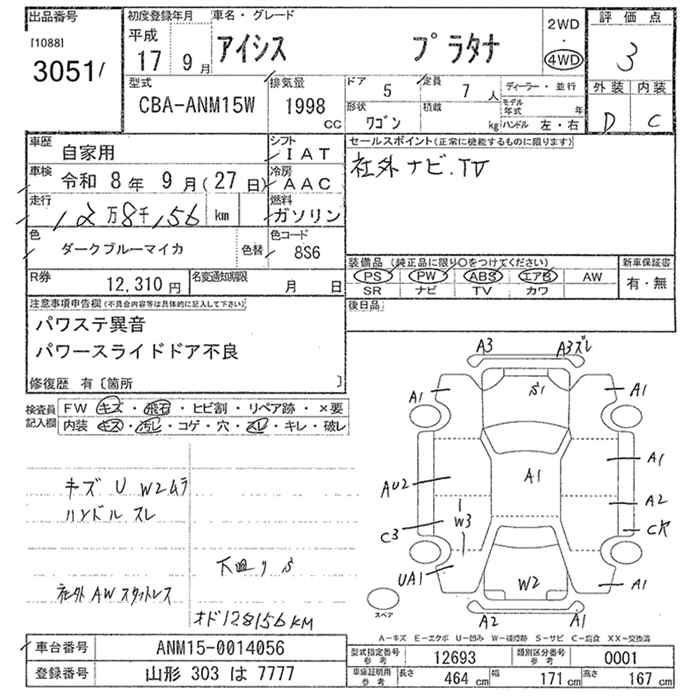 出品番号
[1088]
3051
初度登録年月
平成
17 9月
車名・グレード
アイシス プラタナ
2WD
・
4WD
評価点
3
外装 内装
D C
型式
CBA-ANM15W
排気量
1998
cc
ドア
5
定員
7人
形状
ワゴン
積載
kg
ディーラー・並行
モデル年式 年
ハンドル 左・右
車歴
自家用
シフト
IAT
車検
令和 8年 9月(27日)
冷房
AAC
走行
12万8千156 km
燃料
ガソリン
色
ダークブルーマイカ
色替
色コード
8S6
R券
12,310円
名変通知期限
月 日
セールスポイント(正常に機能するものに限ります)
社外ナビ.TV
装備品(純正品に限り〇をつけてください)
PS PW ABS エアB AW
SR ナビ TV カワ
新車保証書
有・無
後日品
注意事項申告欄(不具合内容等は具体的に記入して下さい)
パワステ異音
パワースライドドア不良
修復歴 有〔箇所 〕
検査員
記入欄
FW キズ・飛石・ヒビ割・リペア跡・×要
内装 キズ・汚レ・コゲ・穴・スレ・キレ・破レ
キズ U W2ムラ
ハンドルスレ
下廻りS
社外AWスタットレス
オド128156KM
A3 A3ズレ
A1 S1 A1
A1
AU2 A1
A2
W3
C3
UA1 W2 A1
A2 A1
スペア
A-キズ E-エクボ U-凹み W-補修跡 S-サビ C-腐食 XX-交換済
車台番号
ANM15-0014056
登録番号
山形 303 は 7777
型式指定番号
参考
12693
類別区分番号
参考
0001
車庫証明用
参考
長さ 464 cm
幅 171 cm
高さ 167 cm